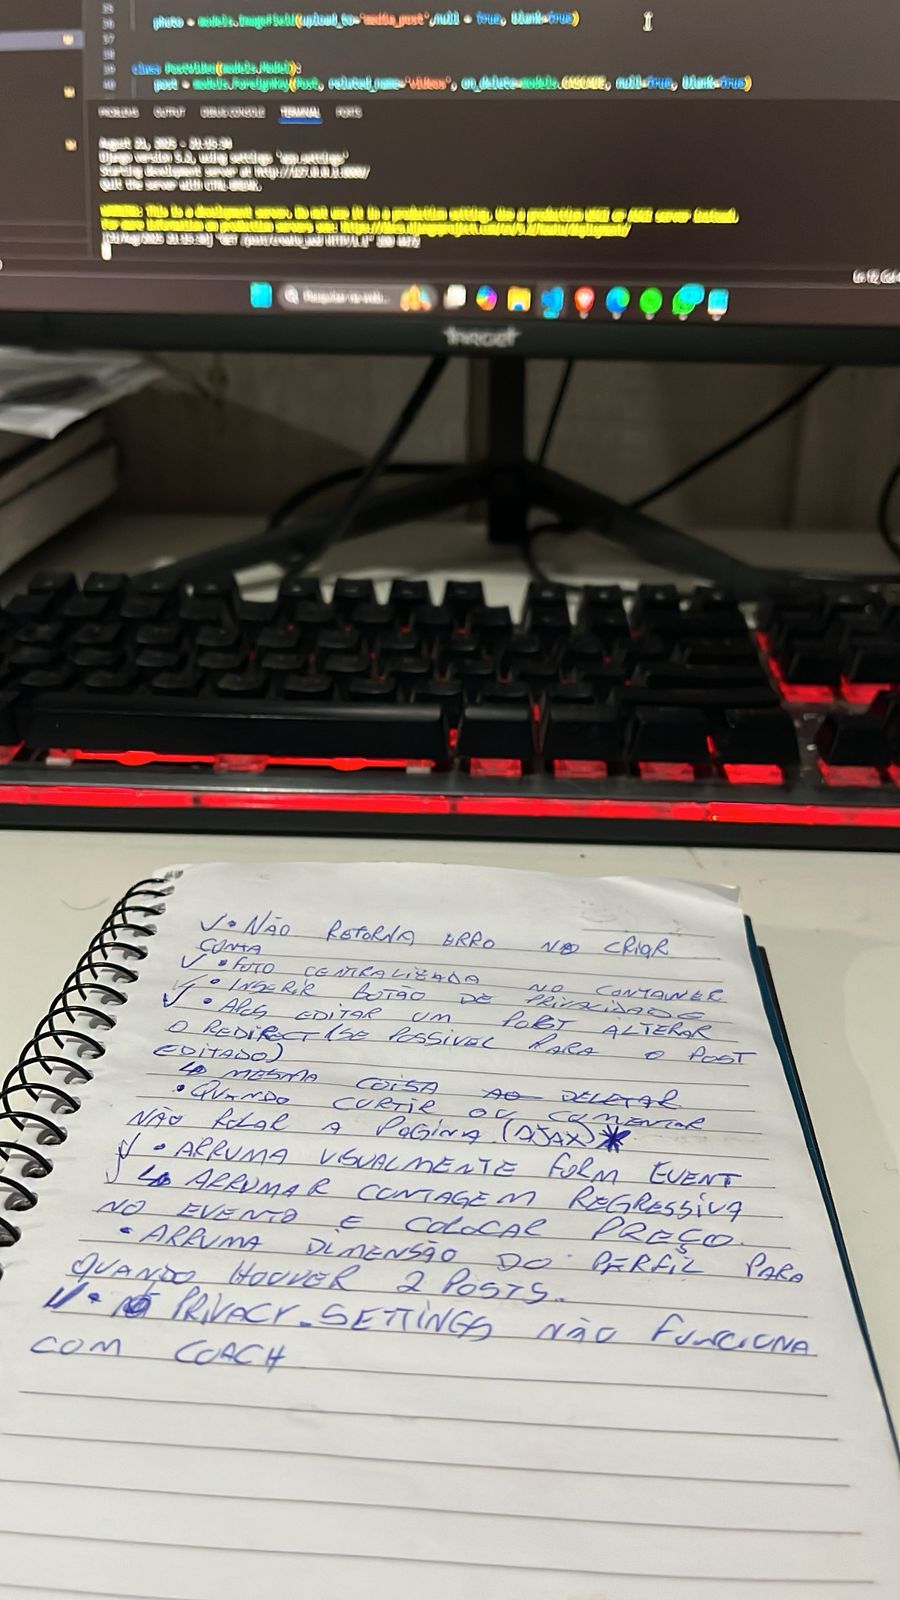 photo = models.ImageField(upload_to='media_post',null = True, blank=True)
class PostVideo(models.Model):
post = models.ForeignKey(Post, related_name='videos', on_delete=models.CASCADE, null=True, blank=True)
PROBLEMS OUTPUT DEBUG CONSOLE TERMINAL PORTS
August 21, 2025 -
Django version 5.2, using settings 'app.settings'
Starting development server at http://127.0.0.1:8000/
Quit the server with CTRL-BREAK.
WARNING: This is a development server. Do not use it in a production setting. Use a production WSGI or ASGI server instead.
For more information on production servers see: https://docs.djangoproject.com/en/5.2/howto/deployment/
"GET /post/create_post HTTP/1.1" 200
Pesquisar na web...
✓ • NÃO RETORNA ERRO NO CRIAR
CONTA
✓ • FOTO CENTRALIZADA NO CONTAINER
✓ • INSERIR BOTÃO DE PRIVACIDADE
✓ • APOS EDITAR UM POST ALTERAR
O REDIRECT (SE POSSIVEL PARA O POST
EDITADO)
↳ MESMA COISA AO DELETAR
• QUANDO CURTIR OU COMENTAR
NÃO ROLAR A PAGINA (AJAX) *
✓ • ARRUMA VISUALMENTE FORM EVENT
✓ ↳ ARRUMAR CONTAGEM REGRESSIVA
NO EVENTO E COLOCAR PREÇO.
• ARRUMA DIMENSÃO DO PERFIL PARA
QUANDO HOUVER 2 POSTS.
✓ • PRIVACY_SETTINGS NÃO FUNCIONA
COM COACH